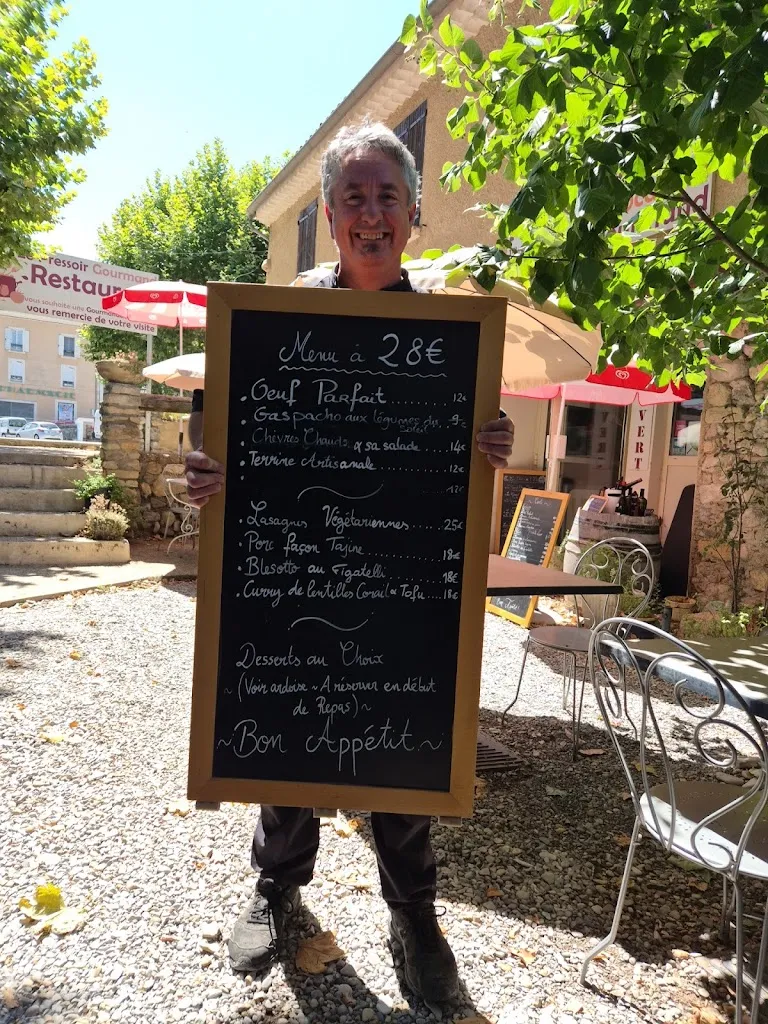 Pressoir Gourmand
Restau
vous souhaite une Gourmand
vous remercie de votre visite
and
VERT
Menu à 28€
. Oeuf Parfait .......... 12€
. Gaspacho aux légumes du Soleil .. 9€
. Chèvres Chauds & sa salade ..... 14€
. Terrine Artisanale .......... 12€
. ..... 17€
. Lasagnes Végétariennes ..... 25€
. Porc façon Tajine .......... 18€
. Blésotto au Figatelli .......... 18€
. Curry de lentilles Corail & Tofu .... 18€
Desserts au Choix
~ (Voir ardoise ~ A réserver en début
de Repas) ~
~ Bon Appétit ~